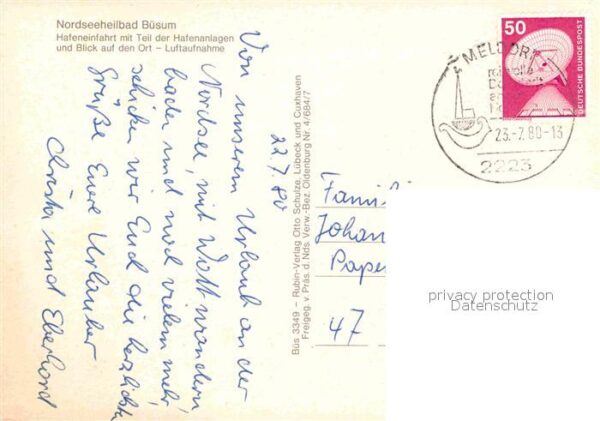 Nordseeheilbad Büsum
Hafeneinfahrt mit Teil der Hafenanlagen
und Blick auf den Ort – Luftaufnahme
22.7.80
Von unserem Urlaub an der
Nordsee, mit Wattwandern,
baden und noch vielem mehr,
schicken wir Euch die herzlichsten
Grüße Eure Urlauber
Christa und Eberhard
Büs 3349 – Rubin-Verlag Otto Schulze, Lübeck und Cuxhaven
Freigeg. v. Präs. d. Nds. Verw.-Bez. Oldenburg Nr. 4/6847/7
50
DEUTSCHE BUNDESPOST
MELDORF
23.-7.80-13
2223
Famili
Johan
Pape
47
privacy protection
Datenschutz